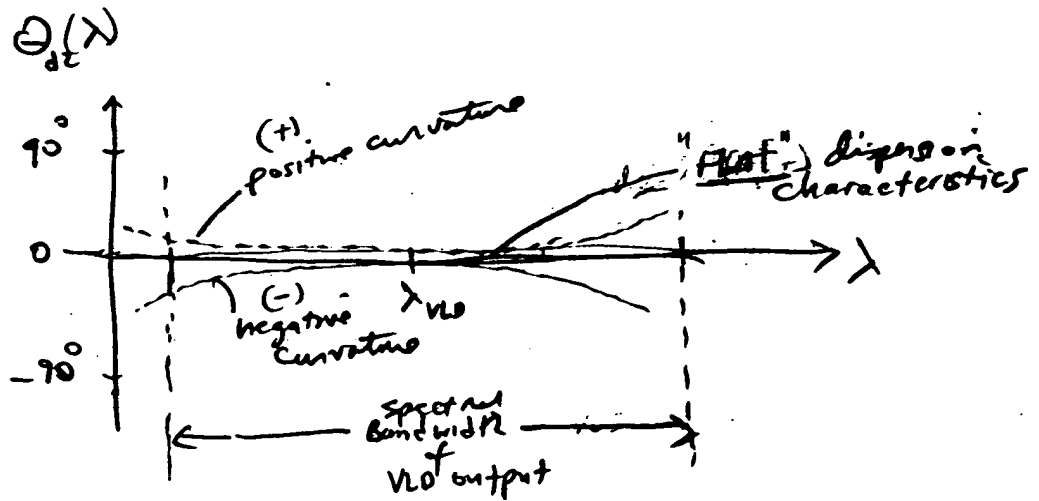 Θdt(λ)
90°
(+)
positive curvature
"FLAT" dispersion
characteristics
0
λ
λVLD
(-)
negative
curvature
-90°
spectral
Bandwidth
of
VLD output